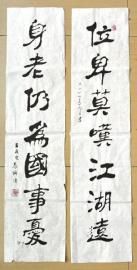 位卑莫嘆江湖遠
身老仍為國事憂